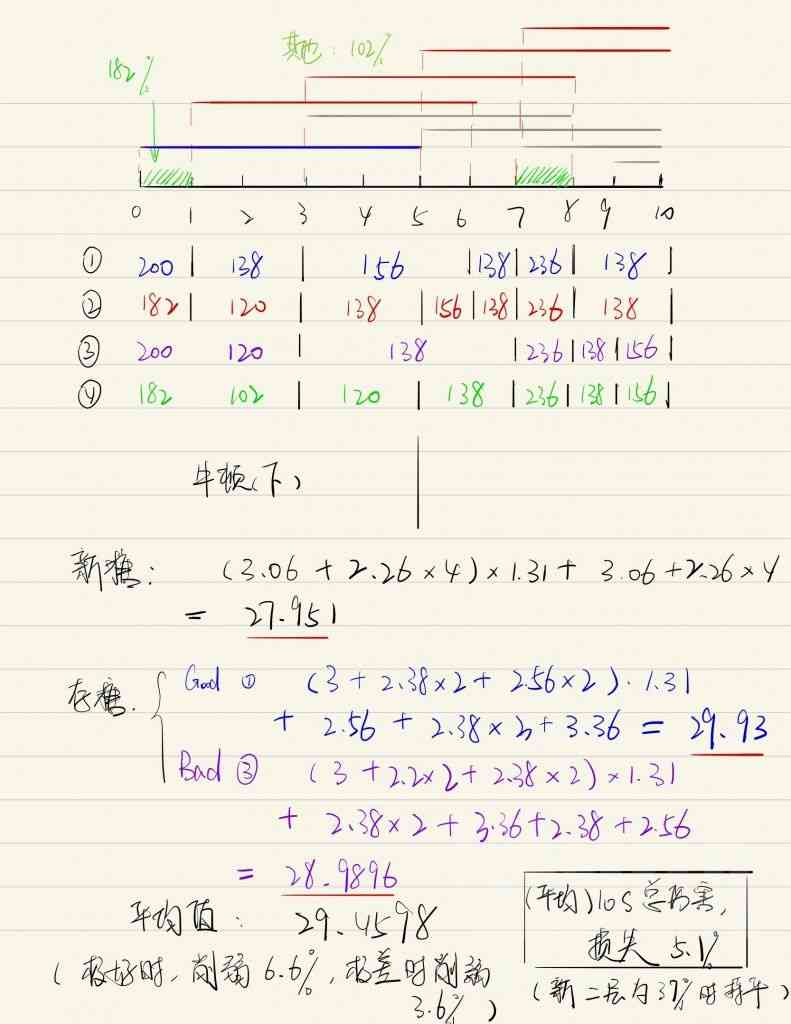 其他：102%
182%
0 1 2 3 4 5 6 7 8 9 10
① 200 | 138 | 156 | 138 | 236 | 138 |
② 182 | 120 | 138 | 156 | 138 | 236 | 138 |
③ 200 120 | 138 | 236 | 138 | 156 |
④ 182 102 | 120 | 138 | 236 | 138 | 156 |
牛顿(下)
新糖： (3.06 + 2.26 × 4) × 1.31 + 3.06 + 2.26 × 4
= 27.951
存糖. Good ① (3 + 2.38 × 2 + 2.56 × 2) · 1.31
+ 2.56 + 2.38 × 3 + 3.36 = 29.93
Bad ③ (3 + 2.2 × 2 + 2.38 × 2) × 1.31
+ 2.38 × 2 + 3.36 + 2.38 + 2.56
= 28.9896
平均值： 29.4598
(平均) 10s 总伤害,
损失 5.1%
(极好时, 削弱 6.6%, 极差时削弱
3.6%)
(新二层为 37% 时持平)